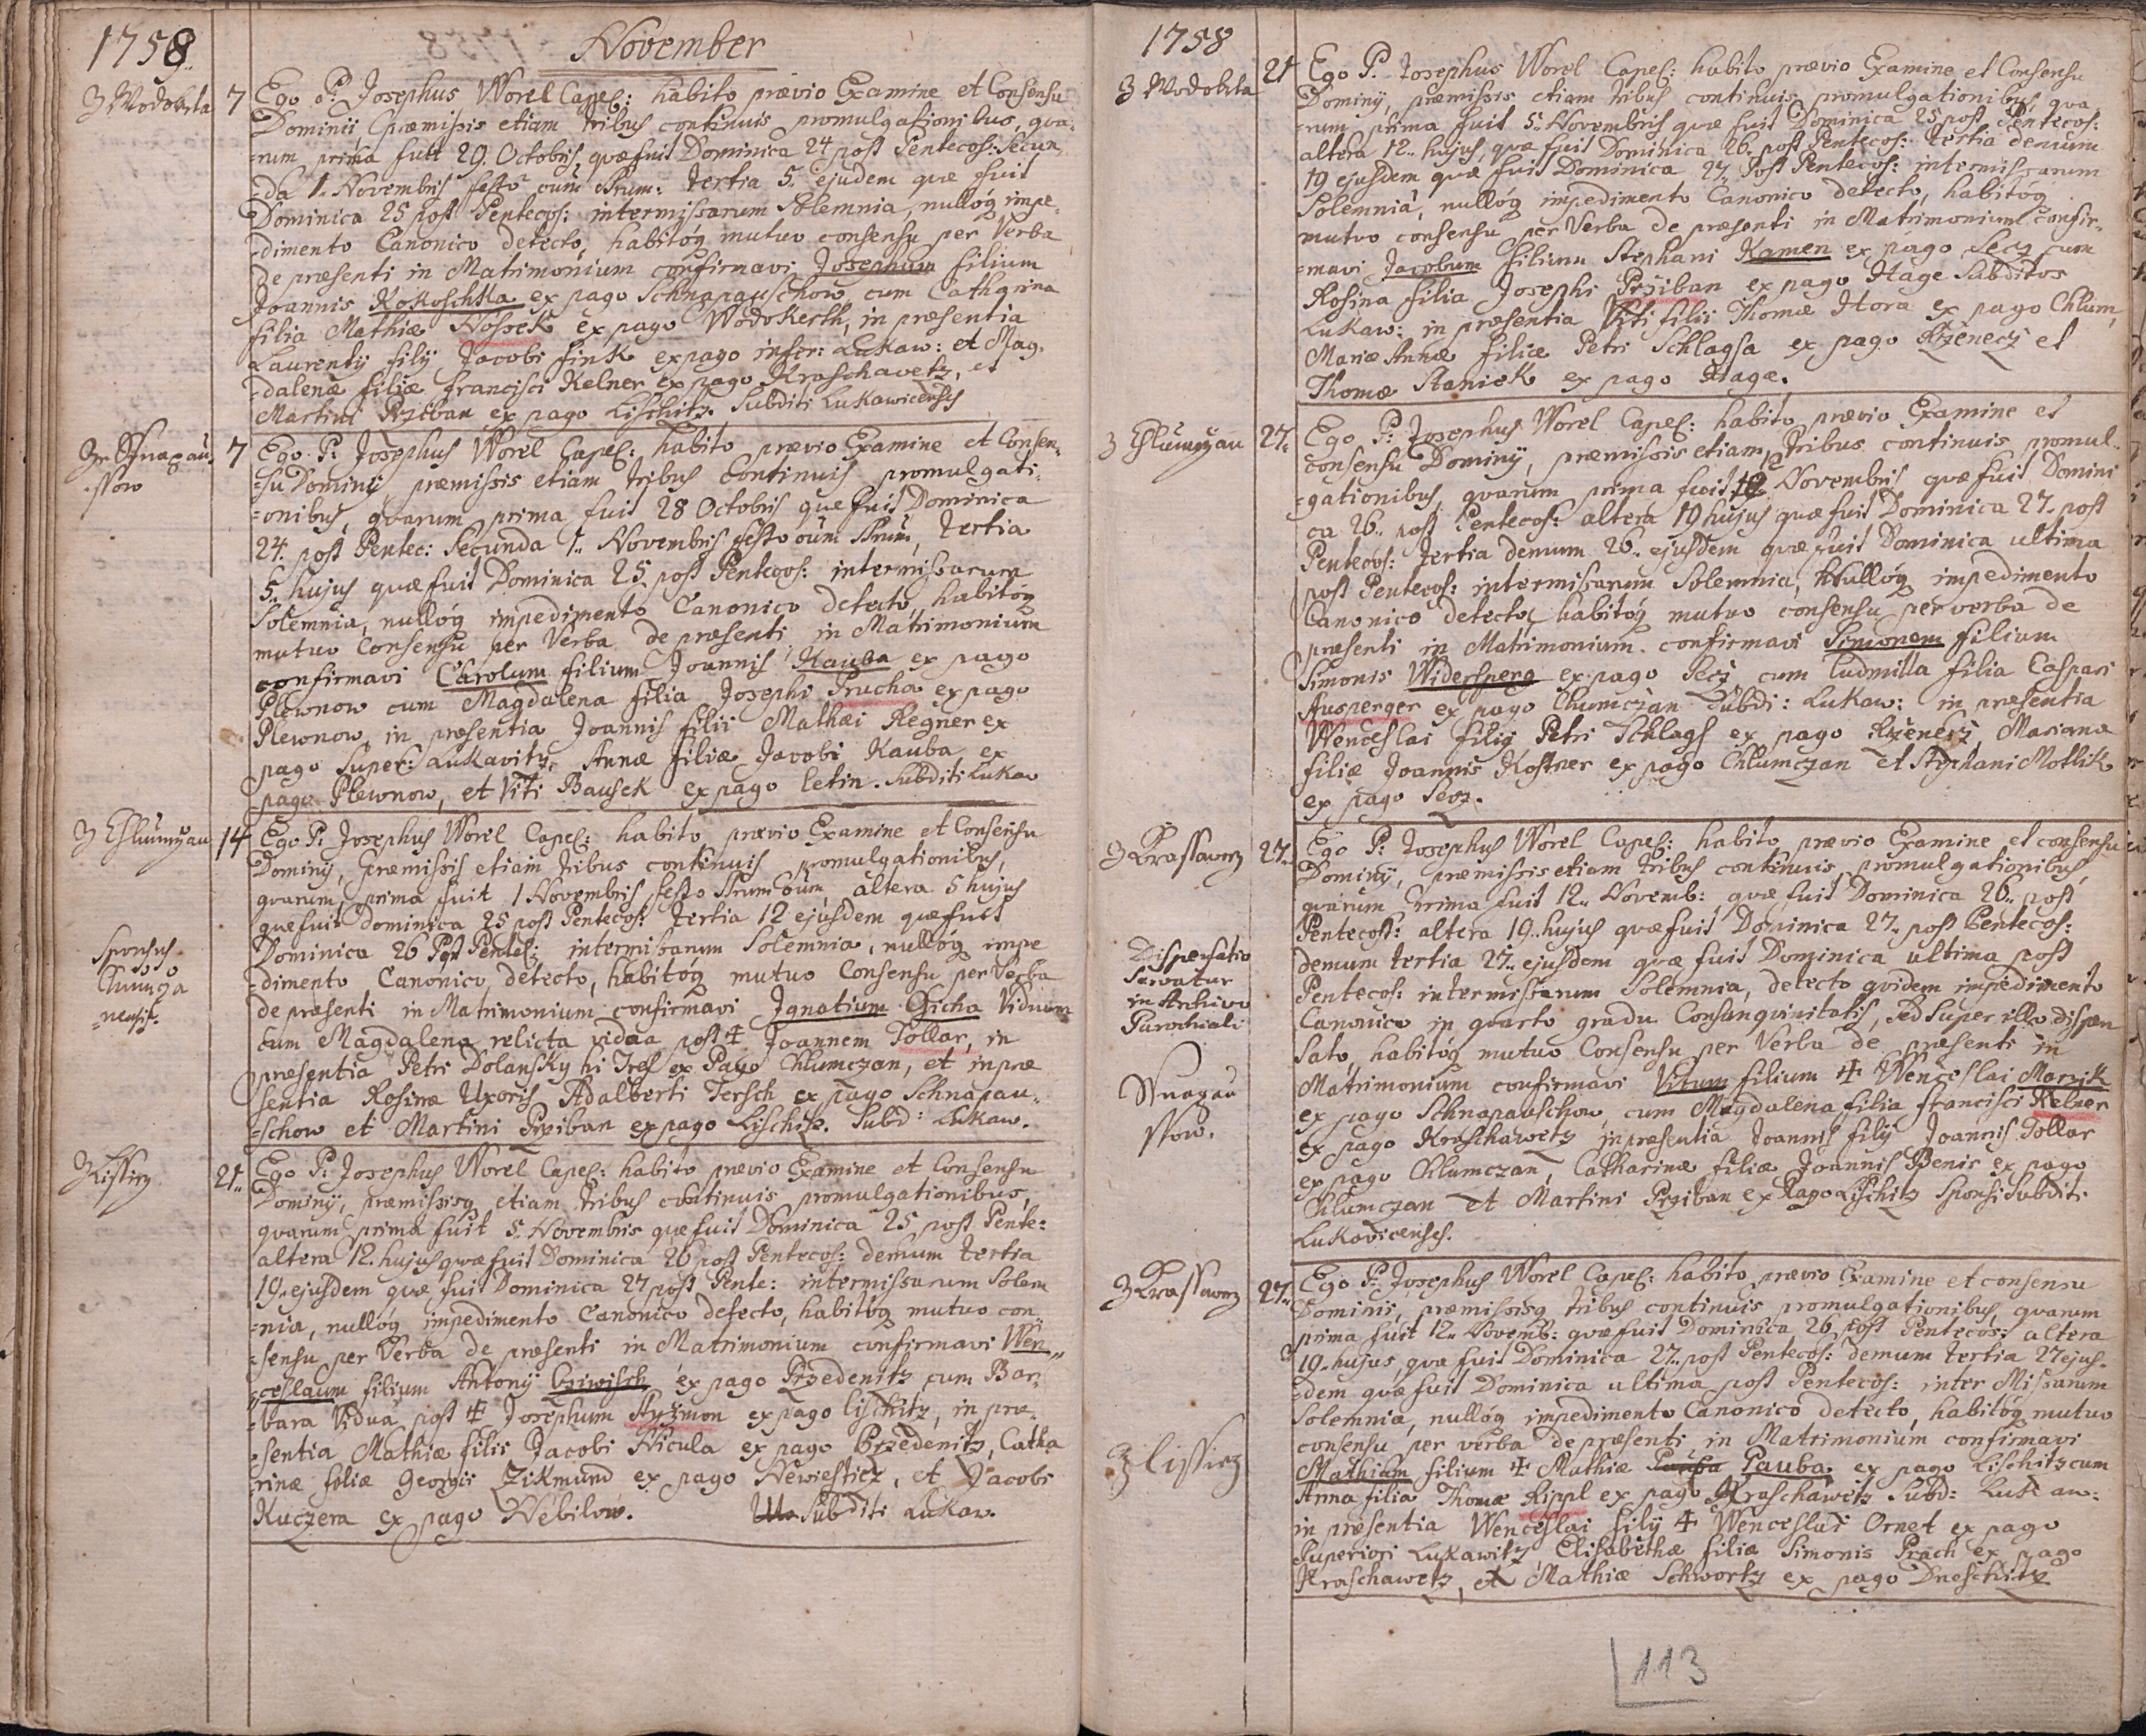 1758
November
Z Wodokrta
7
Ego P: Josephus Worel Capel: habito prævio Examine et Consensu
Dominii præmissis etiam tribus continuis promulgationibus, qva-
=rum prima fuit 29. Octobris, qvæ fuit Dominica 24 post Pentecos: Secun
=da 1. Novembris festo oum SSrum: tertia 5. ejudem quæ fuit
Dominica 25 post Pentecos: intermissarum Solemnia, nullóq impe-
=dimento Canonico detecto, habitóq mutuo consensu per Verba
De præsenti in Matrimonium confirmavi Josephum filium
Joannis Kokoschka ex pago Schnapauschow, cum Catharina
filia Mathiæ Hossek ex pago Wodokerth, in præsentia
Laurentÿ filÿ Jacobi Fink ex pago infer: Lukaw: et Mag-
=dalenæ filiæ Francisci Kelner ex pago Kraschavetz, et
Martini Prziban ex pago Lischitz. Subditi Lukawicenses
Ze Sßnapau
=ssow
7
Ego P: Josephus Worel Capel: habito prævio Examine et Consen-
=su Dominÿ præmissis etiam tribus Continuis promulgati-
=onibus, qvarum prima fuit 28 Octobris quæ fuit Dominica
24. post Pentec: Secunda 1.. Novembris festo oum SSrum, tertia
5.. hujus quæ fuit Dominica 25 post Pentecos: intermissarum
Solemnia, nullóq impedimento Canonico detecto, habitóq
mutuo Consensu per Verba de præsenti in Matrimonium
confirmavi Carolum filium Joannis Kauba ex pago
Plewnow cum Magdalena filia Josephi Prucha ex pago
Plewnow, in præsentia Joannis filii Mathæi Regner ex
pago Super: Lukavitz, Annæ filiæ Jacobi Kauba ex
pago Plewnow, et Viti Bausek ex pago letin. Subditi Lukaw
Z Chlumczan
14
Ego P: Josephus Worel Capel: habito prævio Examine et Consensu
Dominÿ, præmissis etiam tribus continuis promulgationibus,
qvarum prima fuit 1 Novembris festo SSrum oum, altera 5 hujus
quæ fuit Dominica 25 post Pentecos: tertia 12 ejusdem quæ fuit
Dominica 26 Post Pentec: intermissarum Solemnia, nullóq impe
=dimento Canonico detecto, habitóq mutuo Consensu per Verba
de præsenti in Matrimonium confirmavi Ignatium Czicha Viduum
cum Magdalena relicta vidua post ‡ Joannem Tollar, in
præsentia Petri Dolansky hi Tres ex Pago Chlumczan, et in præ
sentia Rosinæ Uxoris Adalberti Tersch ex pago Schnapau-
=schow et Martini Prziban ex pago Lischitz. Subd: Lukaw.
Sponsus
Chumcza
=nensis.
Z Lissicz
21..
Ego P: Josephus Worel Capel: habito prævio Examine et Consensu
Dominÿ, præmissisq etiam tribus continuis promulgationibus,
qvarum prima fuit 5. Novembris quæ fuit Dominica 25 post Pente:
altera 12. hujus qvæ fuit Dominica 26 post Pentecos: demum tertia
19.. ejusdem quæ fuit Dominica 27 post Pente: intermissarum Solem
=nia, nullóq impedimento Canonico detecto, habitóq mutuo con
=sensu per Verba de præsenti in Matrimonium confirmavi Wen„
„ceslaum filium Antonÿ Cziwisch ex pago Przedenitz cum Bar-
=bara Vidua post ‡ Josephum Ryzmon ex pago lischitz, in præ-
=sentia Mathiæ filii Jacobi Hicula ex pago Przedenitz, Catha
rinæ filiæ Georgii Zikmund ex pago Newiesticz, et Jacobi
Kuczera ex pago Nebilow. Subditi Lukaw.
1758
Z Wodokrta
21
Ego P. Josephus Worel Capel: habito prævio Examine et Consensu
Dominÿ, præmissis etiam tribus continuis promulgationibus, qva
=rum prima fuit 5. Novembris quæ fuit Dominica 25 post Pentecos:
altera 12.. hujus, quæ fuit Dominica 26. post Pentecos: tertia demum
19 ejusdem quæ fuit Dominica 27. Post Pentecos: intermissarum
Solemnia, nullóq impedimento Canonico detecto, habitóq
mutuo consensu per Verba de præsenti in Matrimonium confir-
=mavi Jacobum filium Stephani Kamen ex pago Secz cum
Rosina filia Josephi Prziban ex pago Hage Subditos
Lukaw: in præsentia Viti filii Thomæ Hora ex pago Chlum,
Mariæ Annæ filiæ Petri Schlagsa ex pago Rzenecz et
Thomæ Staniek ex pago Hagæ.
Z Chlumczan
27.
Ego P: Josephus Worel Capel: habito prævio Examine et
consensu Dominÿ, præmissis etiam tribus continuis promul-
=gationibus, qvarum prima fuit 12 Novembris qvæ fuit Domini
ca 26.. post Pentecos: altera 19 hujus quæ fuit Dominica 27.. post
Pentecos: tertia demum 26.. ejusdem quæ fuit Dominica ultima
post Pentecos: intermissarum Solemnia, Nullóq impedimento
Canonico detecto, habitóq mutuo consensu per verba de
præsenti in Matrimonium confirmavi Simonem filium
Simonis Widersperg ex pago Secz cum ludmilla filia Caspari
Ausperger ex pago Chumczan Subdi: Lukaw: in præsentia
Wenceslai filÿ Petri Schlags ex pago Rzenecz Marianæ
filiæ Joannis Kostner ex pago Chlumczan et Stephani Motlik
ex pago Secz.
Z Krassawcz
27..
Ego P: Josephus Worel Capel: habito prævio Examine et consensu
Dominÿ, præmissis etiam tribus continuis promulgationibus,
qvarum prima fuit 12.. Novemb: quæ fuit Dominica 26.. post
Pentecost: altera 19.. hujus qvæ fuit Dominica 27.. post Pentecos:
demum tertia 27.. ejusdem quæ fuit Dominica ultima post
Pentecos: intermissarum Solemnia, detecto qvidem impedimento
Canonico in qvarto gradu Consangvinitatis, Sed super illo dispen
sato, habitóq mutuo Consensu per Verba de præsenti in
Matrimonium confirmavi Vitum filium ‡ Wenceslai Marzik
ex pago Schnapauschow, cum Magdalena filia Francisci Kelner
ex pago Kraschawetz in præsentia Joannis filÿ Joannis Tollar
ex pago Chlumczan, Catharinæ filiæ Joannis Benis ex pago
Chlumczan et Martini Prziban ex Pago Lischitz Sponsi Subditi
Lukavicenses.
Dispensatio
Servatur
in Archivo
Parochiali
Snapau
ssow.
Z Krassawcz
27..
Ego P: Josephus Worel Capel: habito prævio Examine et consensu
Dominii, præmissisq tribus continuis promulgationibus, qvarum
prima fuit 12.. Novemb: qvæ fuit Dominica 26 post Pentecos: altera
19.. hujus, quæ fuit Dominica 27.. post Pentecos: demum tertia 27 ejus-
=dem quæ fuit Dominica ultima post Pentecos: inter Missarum
Solemnia, nullóq impedimento Canonico detecto, habitóq mutuo
consensu per verba de præsenti in Matrimonium confirmavi
Mathiam filium ‡ Mathiæ Pauba ex pago Lischitz cum
Anna filia Thomæ Rippl ex pago Kraschawetz Subd: Lukaw:
in præsentia Wenceslai filÿ ‡ Wenceslai Ornet ex pago
Superiori Lukawitz, Elisabethæ filiæ Simonis Prach ex pago
Kraschawetz, et Mathiæ Schwortz ex pago Dneschitz
Z lissicz
113